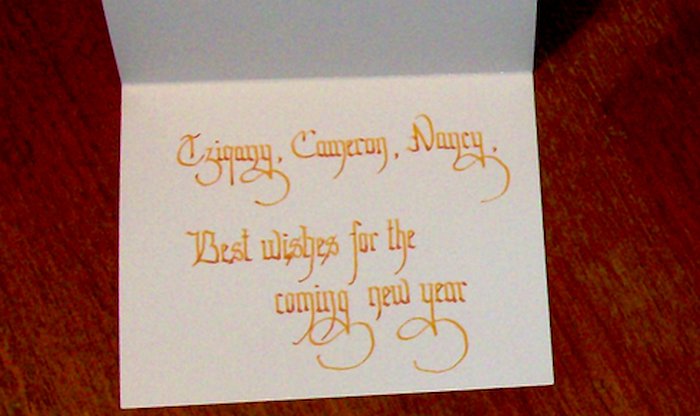 Tzigany, Cameron, Nancy,
Best wishes for the
coming new year